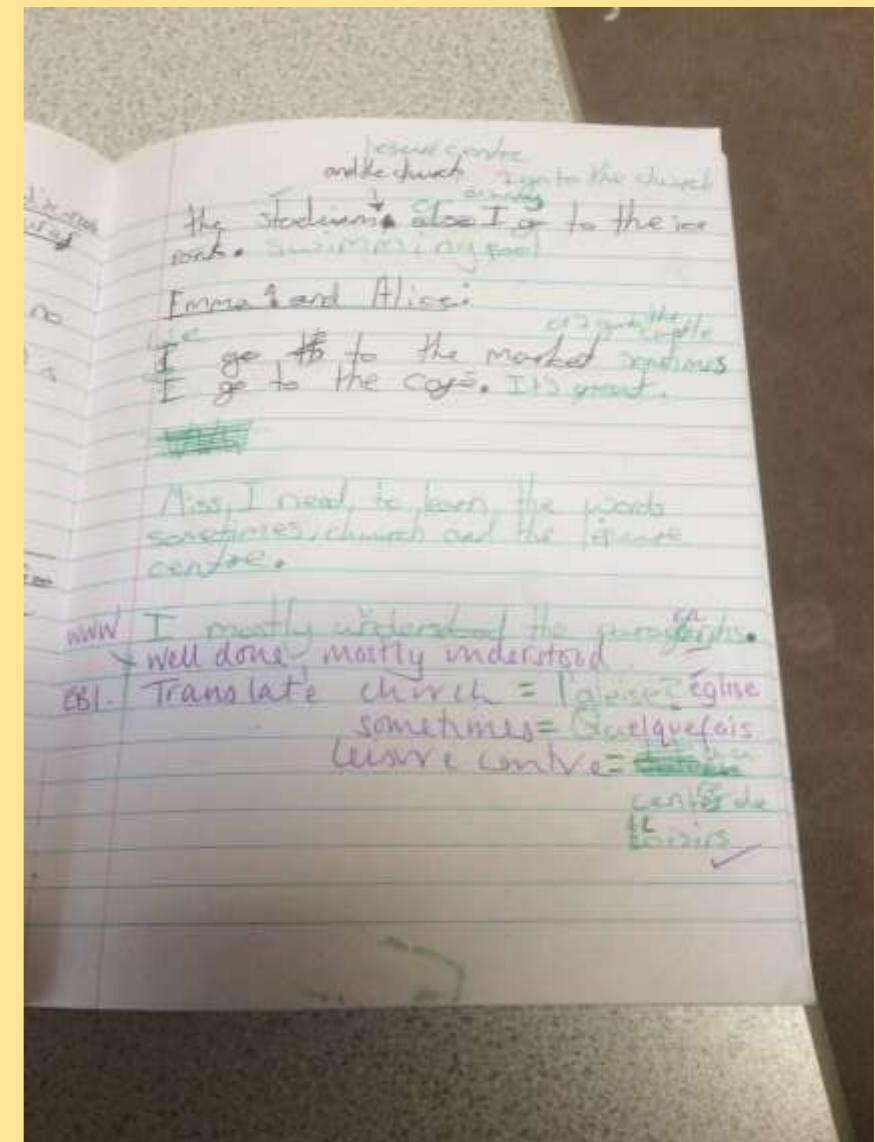 centre
and the church I go to the church
the stadium. also I go to the ice
swimming pool
Emma and Alice:
I go to to the market sometimes
I go to the café. It's great.
Miss, I need to learn the words
sometimes, church and the centre.
www I mostly understood the paragraphs.
well done, mostly understood
EBI. Translate church = église
sometimes = Quelquefois
Leisure centre =
de
loisirs